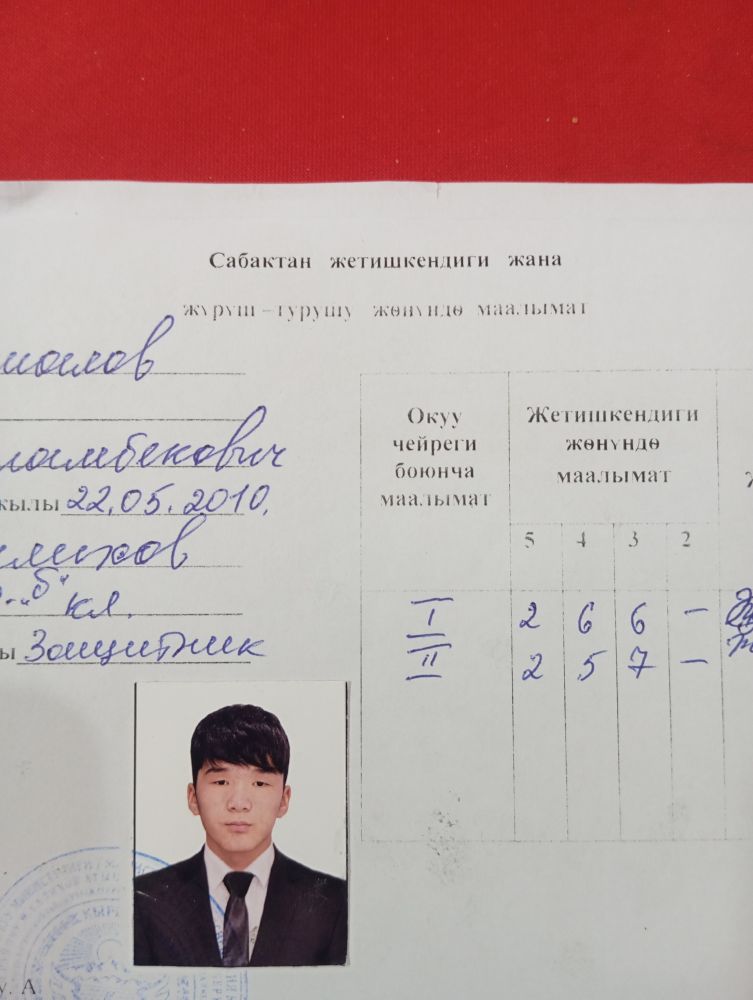 Сабактан жетишкендиги жана
жүрүш-турушу жөнүндө маалымат
ламбекович
жылы 22.05.2010.
"б" кл.
ы Защитник
Окуу
чейреги
боюнча
маалымат
Жетишкендиги
жөнүндө
маалымат
5 4 3 2
I 2 6 6 –
II 2 5 7 –
у. А